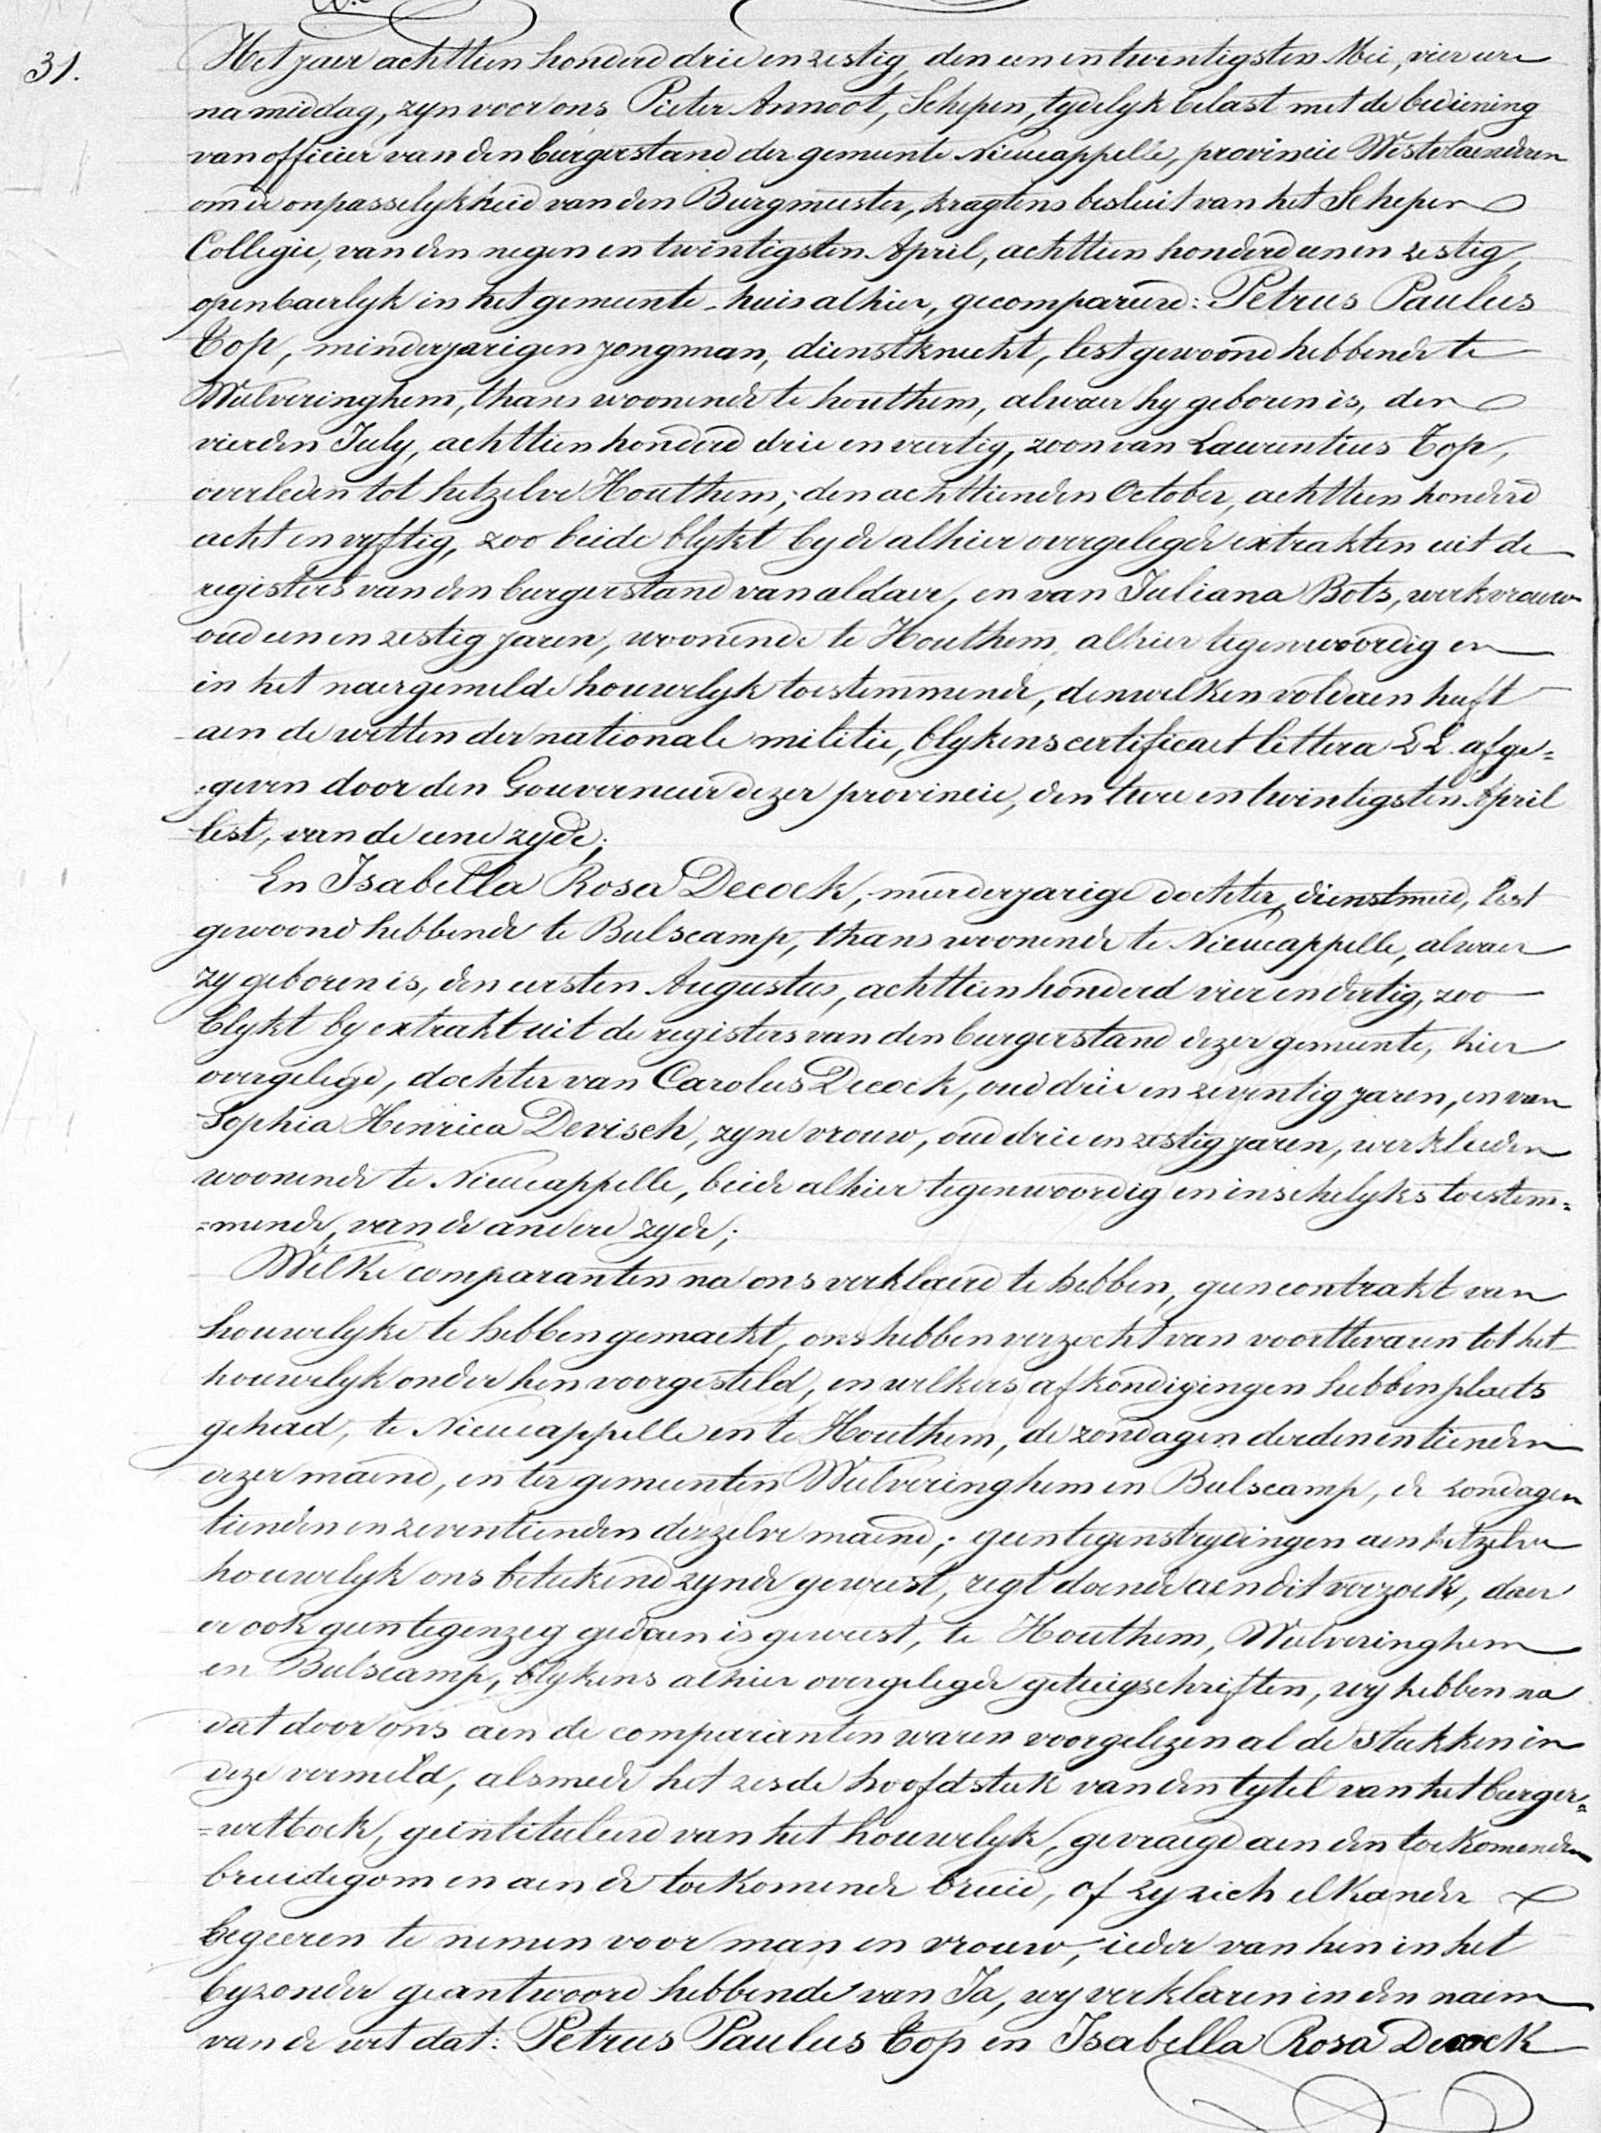 31.
Het jaer achttien honderd drie en zestig, den een en twintigsten Mei, vier ure
na middag, zyn voor ons Pieter Annoot, Schepen, tydelyk belast met de bediening
van officier van den burgerstand der gemeente Nieucappelle, provincie Westvlaenderen
om de onpasselykheid van den Burgmeester, kragtens besluit van het Schepen
Collegie, van den negen en twintigsten April, achttien honderd een en zestig,
openbaerlyk in het gemeente-huis alhier, gecompareerd: Petrus Paulus
Top, minderjarigen jongman, dienstknecht, lest gewoond hebbende te
Wulveringhem, thans woonende te houthem, alwaer hy geboren is, den
vierden July, achttien honderd drie en veertig, zoon van Laurentius Top,
overleden tot hetzelve Houthem, den achttienden October, achttien honderd
acht en vyftig, zoo beide blykt by de alhier overgelegde extrakten uit de
registers van den burgerstand van aldaer, en van Juliana Bots, werkvrouw
oud een en zestig jaren, woonende te Houthem, alhier tegenwoordig en
in het naergemelde houwelyk toestemmende, denwelken voldaen heeft
aen de wetten der nationale militie, blykens certificaet littera LL. afge=
=geven door den Gouverneur dezer provincie, den twee en twintigsten April
lest, van de eene zyde;
En Isabella Rosa Decock, meerderjarige dochter, dienstmeid, lest
gewoond hebbende te Bulscamp, thans woonende te Nieucappelle, alwaer
zy geboren is, den eersten Augustus, achttien honderd vier en dertig, zoo
blykt by extrakt uit de registers van den burgerstand dezer gemeente, hier
overgelegd, dochter van Carolus Decock, oud drie en zeventig jaren, en van
Sophia Henrica Devisch, zyne vrouw, oud drie en zestig jaren, werklieden
woonende te Nieucappelle, beide alhier tegenwoordig en inschelyks toestem=
=mende, van de andere zyde;
Welke comparanten na ons verklaerd te hebben, geen contrakt van
houwelyke te hebben gemaekt, ons hebben verzocht van voorttevaren tot het
houwelyk onder hen voorgesteld, en welkers afkondigingen hebben plaets
gehad, te Nieucappelle en te Houthem, de zondagen derden en tienden
dezer maend, en ter gemeenten Wulveringhem en Bulscamp, de zondagen
tienden en zeventienden derzelve maend; geen tegenstrydingen aen hetzelve
houwelyk ons beteekend zynde geweest, regt doende aen dit verzoek, daer
er ook geen tegenzeg gedaen is geweest, te Houthem, Wulveringhem
en Bulscamp, blykens alhier overgelegde getuigschriften, wy hebben na
dat door ons aen de comparanten waren voorgelezen al de stukken in
deze vermeld, alsmede het zesde hoofdstuk van den tytel van het burger=
=wetboek, geintituleerd van het houwelyk, gevraegd aen den toekomenden
bruidegom en aen de toekomende bruid, of zy zich elkander
begeeren te nemen voor man en vrouw, ieder van hen in het
byzonder geantwoord hebbende van Ja, wy verklaren in den naem
van de wet dat: Petrus Paulus Top en Isabella Rosa Decock